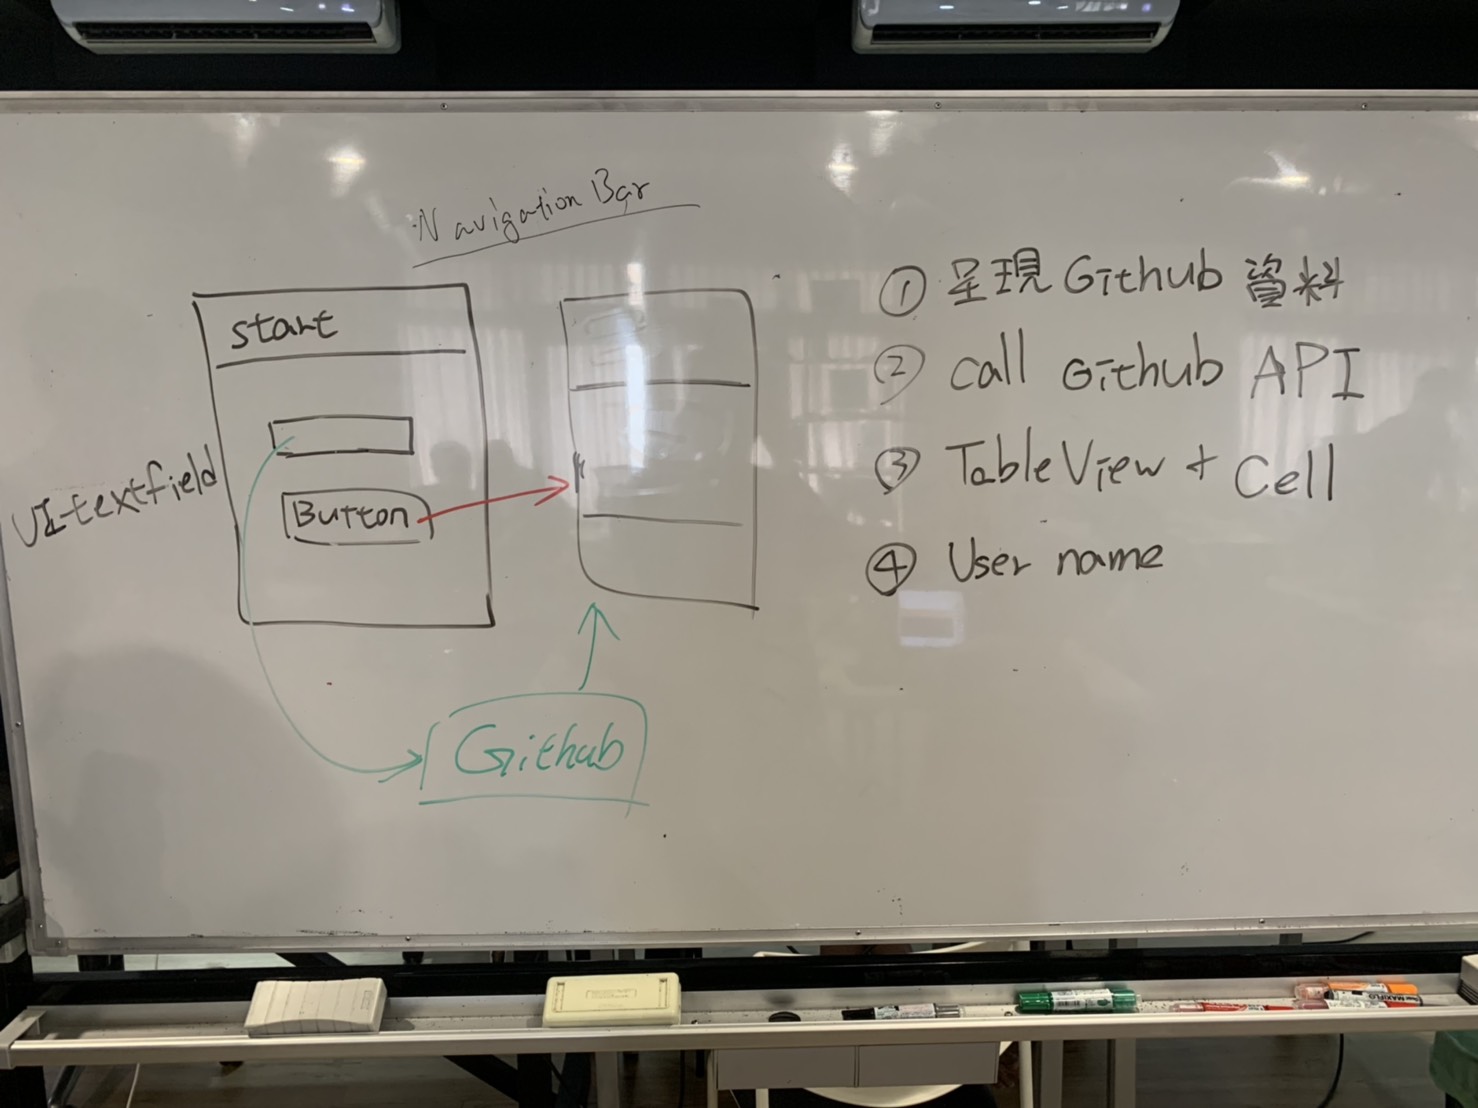 Navigation Bar
start
UI-textfield
Button
Github
① 呈現 Github 資料
② call Github API
③ TableView + Cell
④ User name